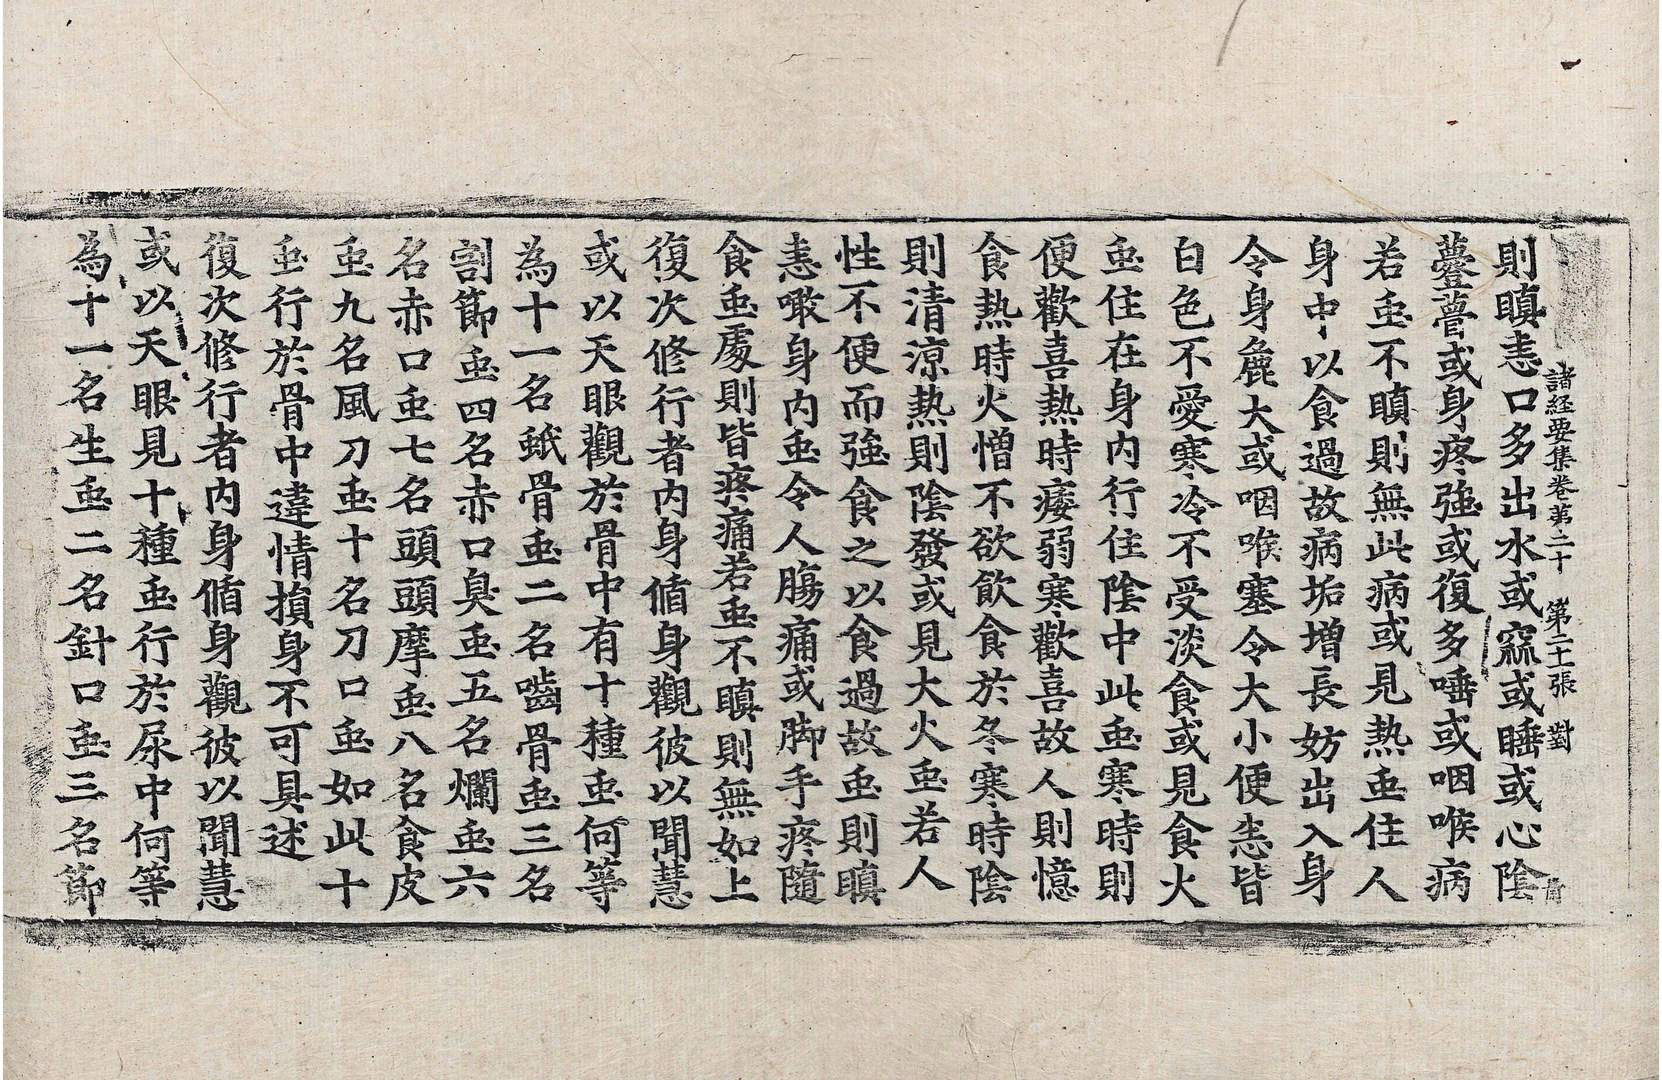 諸経要集卷第二十 第二十張 對
則瞋恚口多出水或窳或睡或心陰
薹瞢或身疼強或復多唾或咽喉病
若䖝不瞋則無此病或見熱䖝住人
身中以食過故病垢增長妨出入身
令身麁大或咽喉塞令大小便恚皆
白色不愛寒冷不受淡食或見食火
䖝住在身内行住陰中此䖝寒時則
便歡喜熱時痿弱寒歡喜故人則憶
食熱時火憎不欲飲食於冬寒時陰
則清涼熱則陰發或見大火䖝若人
性不便而強食之以食過故䖝則瞋
恚噉身内䖝令人膓痛或脚手疼隨
食䖝處則皆疼痛若䖝不瞋則無如上
復次修行者内身循身觀彼以聞慧
或以天眼觀於骨中有十種䖝何等
為十一名蚔骨䖝二名嚙骨䖝三名
割節䖝四名赤口臭䖝五名爛䖝六
名赤口䖝七名頭頭摩䖝八名食皮
䖝九名風刀䖝十名刀口䖝如此十
䖝行於骨中違情損身不可具述
復次修行者内身循身觀彼以聞慧
或以天眼見十種䖝行於尿中何等
為十一名生䖝二名針口䖝三名節